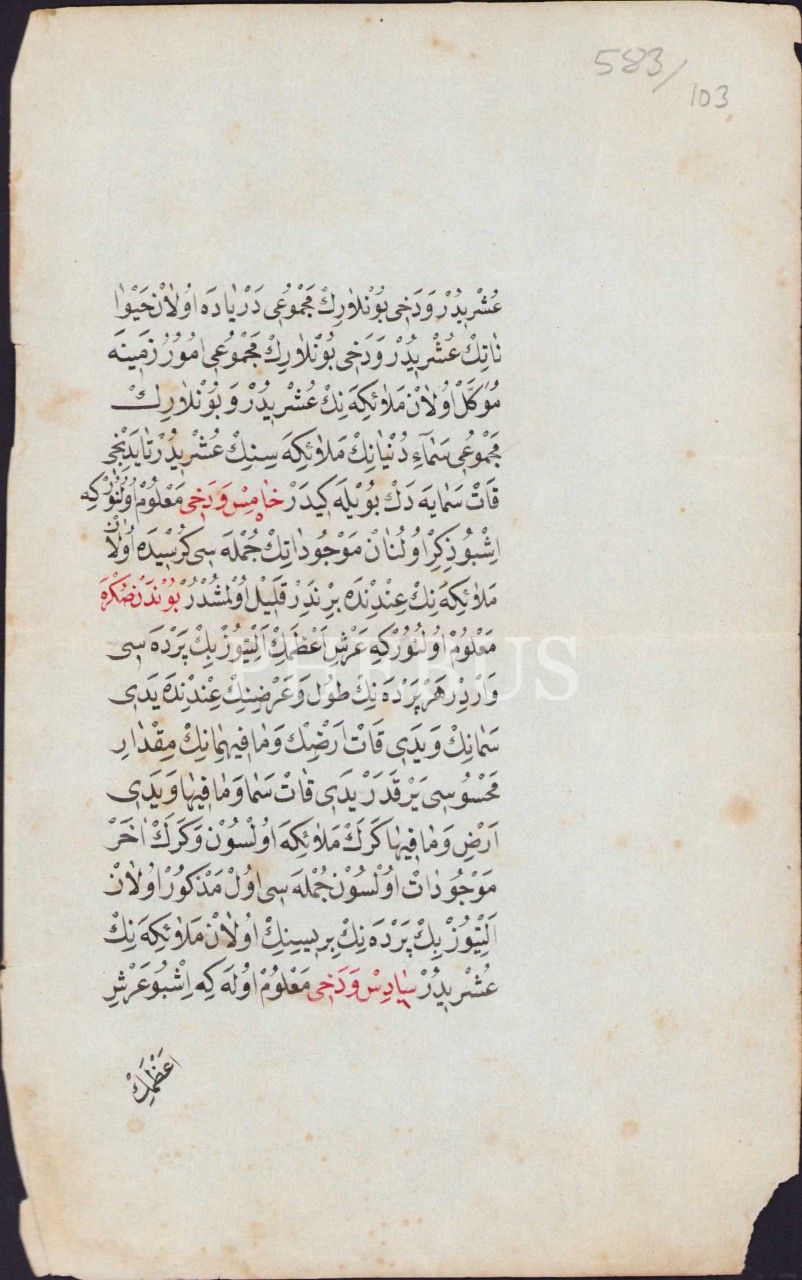 583/103
عُشْرِيدُرْ وَدَخِى بُونْلَارِكْ مَجْمُوعِى دَرْيَادَه اُولَانْ حَيْوَا
نَاتِكْ عُشْرِيدُرْ وَدَخِى بُونْلَارِكْ مَجْمُوعِى اُمُورُ زَمِينَه
مُوَكَّلْ اُولَانْ مَلَائِكَه نِكْ عُشْرِيدُرْ وَبُونْلَارِكْ
مَجْمُوعِى سَمَاءِ دُنْيَانِكْ مَلَائِكَه سِنِكْ عُشْرِيدُرْ تَا يَدِنْجِى
قَاتْ سَمَايَه دَكْ بُويْلَه كِيدَرْ خَامِسْ وَدَخِى مَعْلُومْ اُولُنُورْكِه
اِشْبُو ذِكِرْ اُولُنَانْ مَوْجُودَاتِكْ جُمْلَه سِى كُرْسِيدَه اُولَانْ
مَلَائِكَه نِكْ عِنْدِنْدَه بِرْ نَدِرْ قَلِيلْ اُولْمُشْدُرْ بُونْدَنْ صُكْرَه
مَعْلُومْ اُولُنُورْكِه عَرْشِ اَعْظَمِكْ اَلْتِيُوزْ بِكْ پَرْدَه سِى
وَارْدِرْ هَرْ پَرْدَه نِكْ طُولْ وَعَرْضِنِكْ عِنْدِنْدَه يَدِى
سَمَانِكْ وَيَدِى قَاتْ اَرْضِكْ وَمَافِيهِمَانِكْ مِقْدَارِ
مَحْسُوسِى يَرْ قَدَرْ يَدِى قَاتْ سَمَا وَمَافِيهَا وَيَدِى
اَرْضِ وَمَافِيهَا كَرَكْ مَلَائِكَه اُولْسُونْ وَكَرَكْ اٰخَرْ
مَوْجُودَاتْ اُولْسُونْ جُمْلَه سِى اُولْ مَذْكُورْ اُولَانْ
اَلْتِيُوزْ بِكْ پَرْدَه نِكْ بِرِيسِينِكْ اُولَانْ مَلَائِكَه نِكْ
عُشْرِيدُرْ سَادِسْ وَدَخِى مَعْلُومْ اُولَه كِه اِشْبُو عَرْشِ
اعْظَمِكْ
PHEBUS